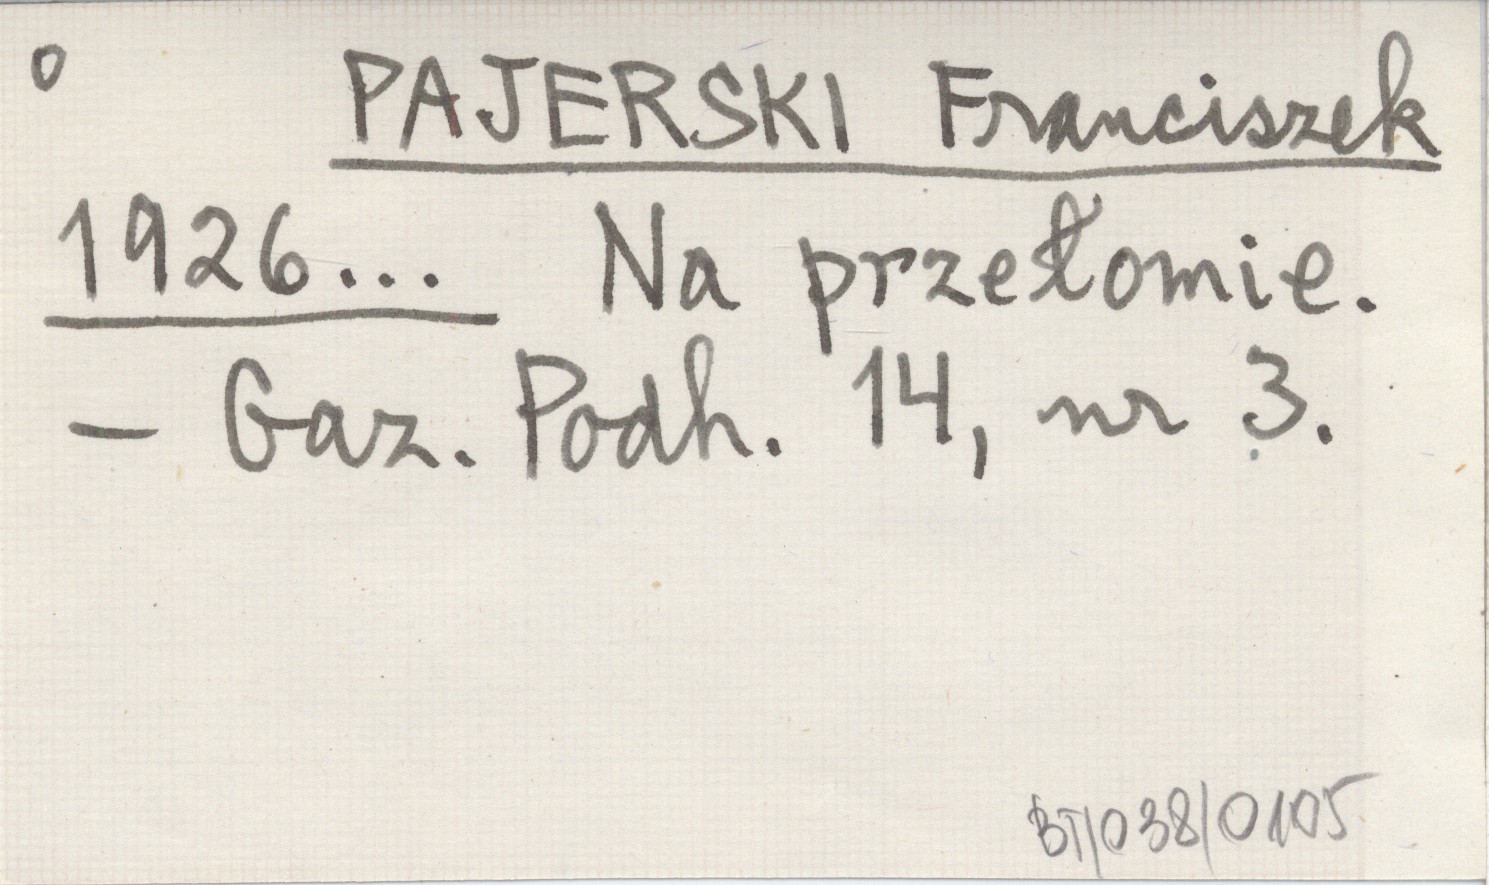 o PAJERSKI Franciszek
1926... Na przełomie.
- Gaz. Podh. 14, nr 3.
BT/038/0105